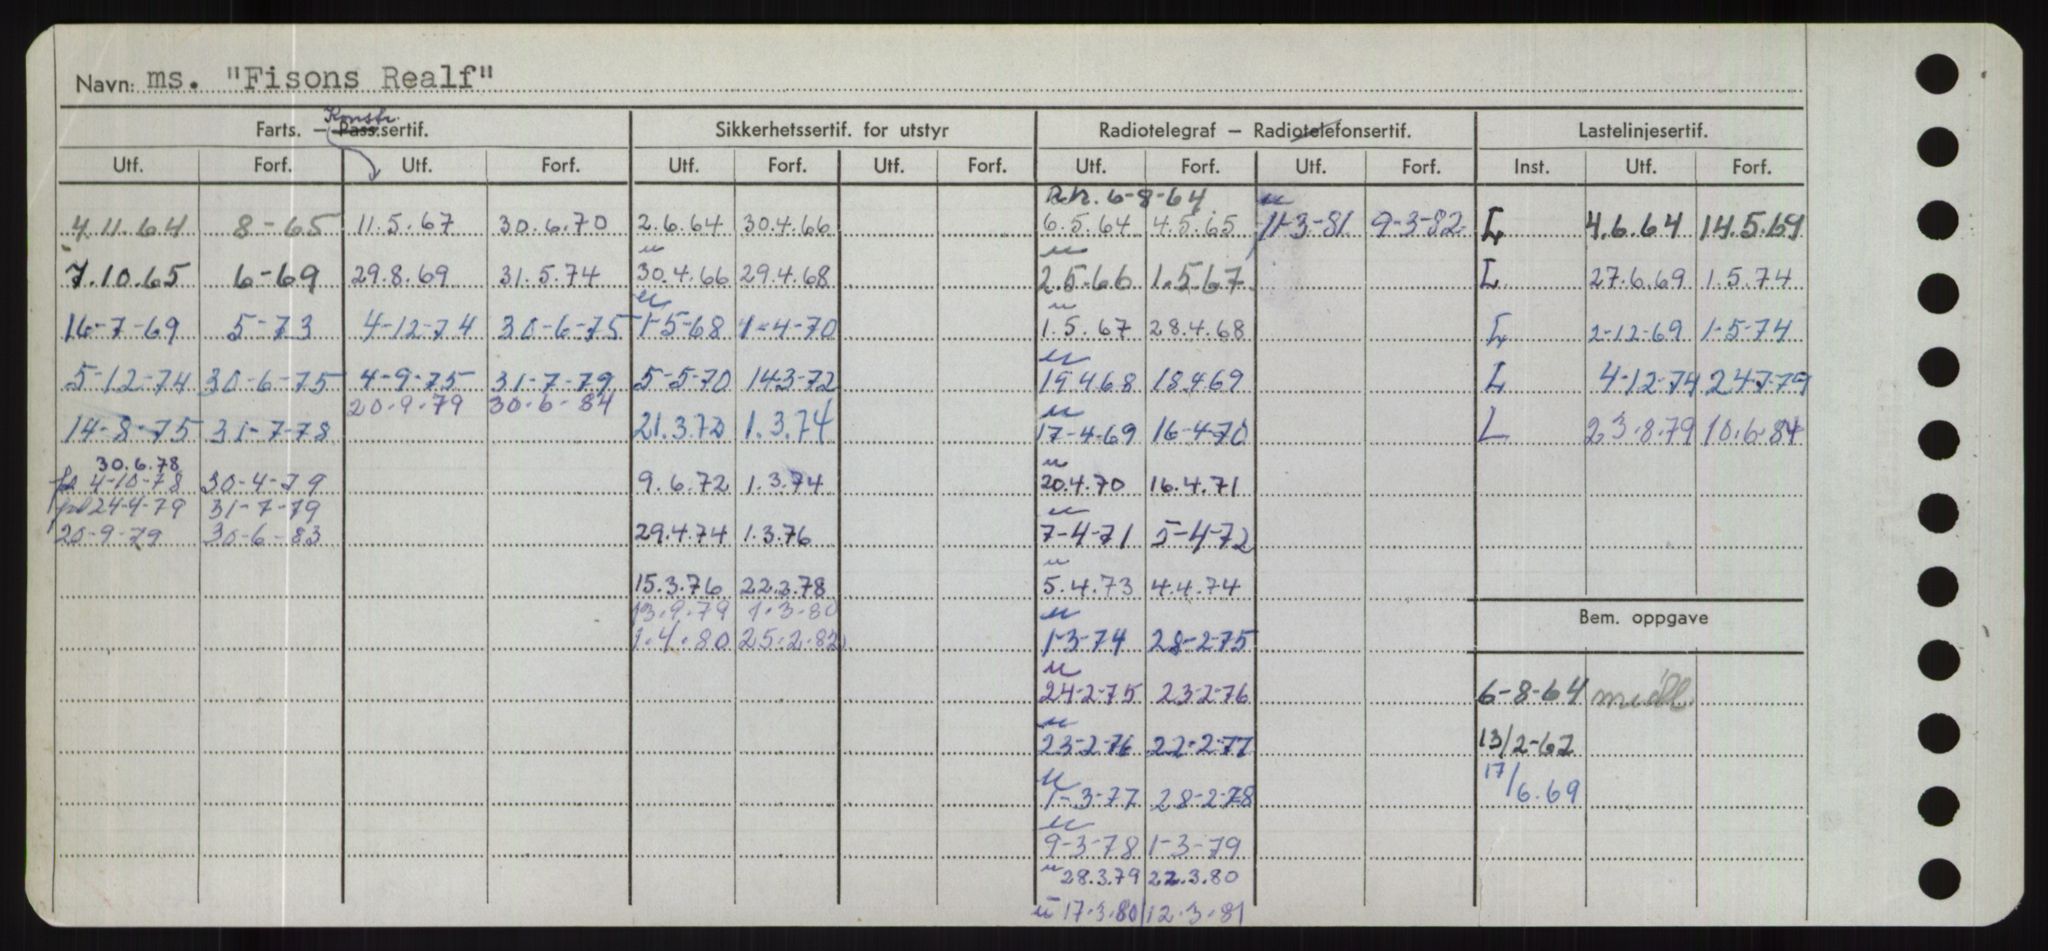 Navn: ms. "Fisons Realf"
Konstr.
Farts. – Pass.sertif. Sikkerhetssertif. for utstyr Radiotelegraf – Radiotelefonsertif. Lastelinjesertif.
Utf. Forf. Utf. Forf. Utf. Forf. Utf. Forf. Utf. Forf. Utf. Forf. Inst. Utf. Forf.
6-8-64 u
4.11.64 8-65 11.5.67 30.6.70 2.6.64 30.4.66 6.5.64 4.5.65 11-3-81 9-3-82 L 4.6.64 14.5.69
u u
7.10.65 6-69 29.8.69 31.5.74 30.4.66 29.4.68 2.5.66 1.5.67 L 27.6.69 1.5.74
u u
16-7-69 5-73 4-12-74 30-6-75 1-5-68 1-4-70 1.5.67 28.4.68 L 2-12-69 1-5-74
u
5-12-74 30-6-75 4-9-75 31-7-79 5-5-70 143-72 19.4.68 18.4.69 L 4-12-74 24-7-79
20.9.79 30-6-84 u
14-8-75 31-7-78 21.3.72 1.3.74 17-4-69 16-4-70 L 23.8.79 10.6.84
30.6.78 u
4-10-78 30-4-79 9.6.72 1.3.74 20.4.70 16.4.71
24-4-79 31-7-79 u
20-9-79 30-6-83 29.4.74 1.3.76 7-4-71 5-4-72
u
15.3.76 22.2.78 5.4.73 4.4.74
13.9.79 1.3.80 u
Bem. oppgave
1.4.80 25.2.82 1-3-74 28-2-75
u
24-2-75 23-2-76 6-8-64 midl.
u
23-2-76 22-2-77 13/2-67
u
1-3-77 28-2-78 17/6.69
u
9-3-78 1-3-79
u 28.3.79 22.3.80
u 17.3.80 12.3.81